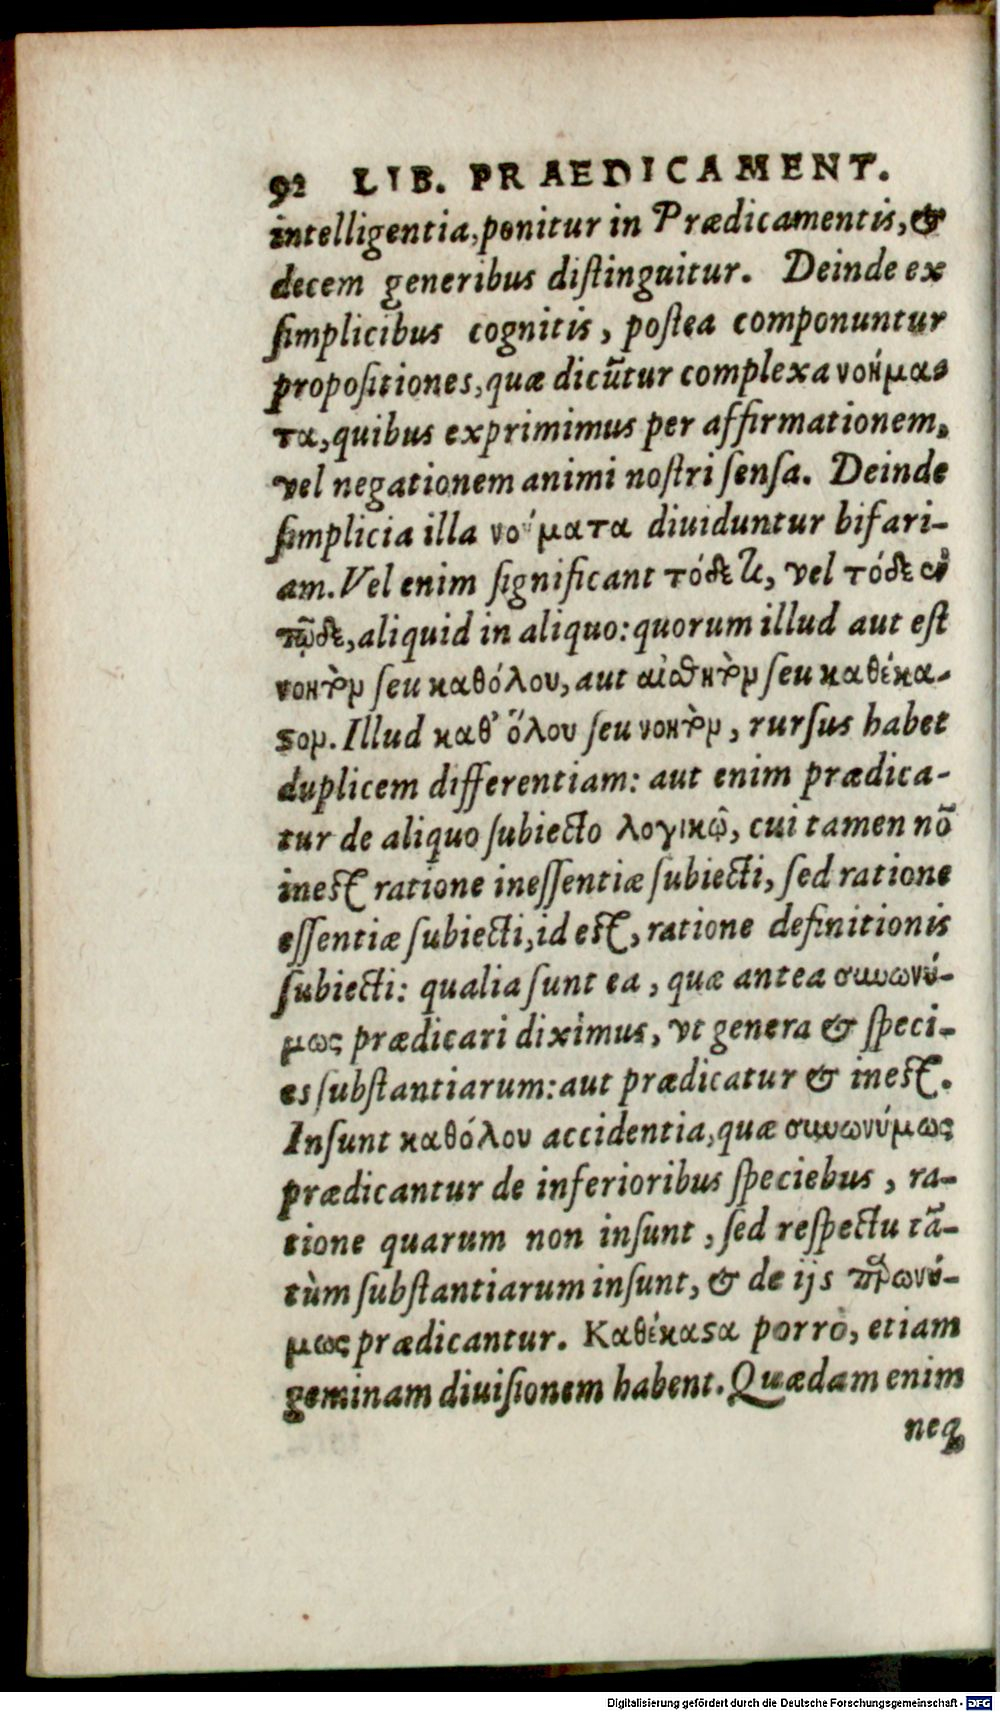 92 LIB. PRAEDICAMENT.
intelligentia, ponitur in Prædicamentis, &
decem generibus distinguitur. Deinde ex
simplicibus cognitis, postea componuntur
propositiones, quæ dicūtur complexa νοήμα⸗
τα, quibus exprimimus per affirmationem,
vel negationem animi nostri sensa. Deinde
simplicia illa νοήματα diuiduntur bifari-
am. Vel enim significant τόδε τι, vel τόδε ἐν
τῷδε, aliquid in aliquo: quorum illud aut est
νοητὸν seu καθόλου, aut αἰσθητὸν seu καθέκα-
ϛον. Illud καθ' ὅλου seu νοητὸν, rursus habet
duplicem differentiam: aut enim prædica-
tur de aliquo subiecto λογικῶ, cui tamen nō
inest ratione inessentiæ subiecti, sed ratione
essentiæ subiecti, id est, ratione definitionis
subiecti: qualia sunt ea, quæ antea συνωνύ-
μως prædicari diximus, vt genera & speci-
es substantiarum: aut prædicatur & inest.
Insunt καθόλου accidentia, quæ συνωνύμως
prædicantur de inferioribus speciebus, ra-
tione quarum non insunt, sed respectu tā-
tùm substantiarum insunt, & de ijs παρωνύ-
μως prædicantur. Καθέκαϛα porrò, etiam
geminam diuisionem habent. Quædam enim
neq;
Digitalisierung gefördert durch die Deutsche Forschungsgemeinschaft - DFG